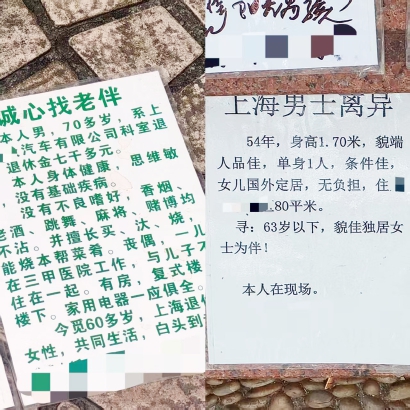 诚心找老伴
本人男，70多岁，系上
汽车有限公司科室退
退休金七千多元。
本人身体健康，思维敏
，没有基础疾病。
没有不良嗜好，香烟、
老酒、跳舞、麻将、赌博均
不沾。并擅长买、汏、烧，
能烧本帮菜肴。丧偶，一儿
在三甲医院工作，与儿子不
住在一起。有房，复式楼
楼下。家用电器一应俱全。
今觅60多岁，上海退休
女性，共同生活，白头到
上海男士离异
54年，身高1.70米，貌端
人品佳，单身1人，条件佳，
女儿国外定居，无负担，住
.80平米。
寻：63岁以下，貌佳独居女
士为伴！
本人在现场。